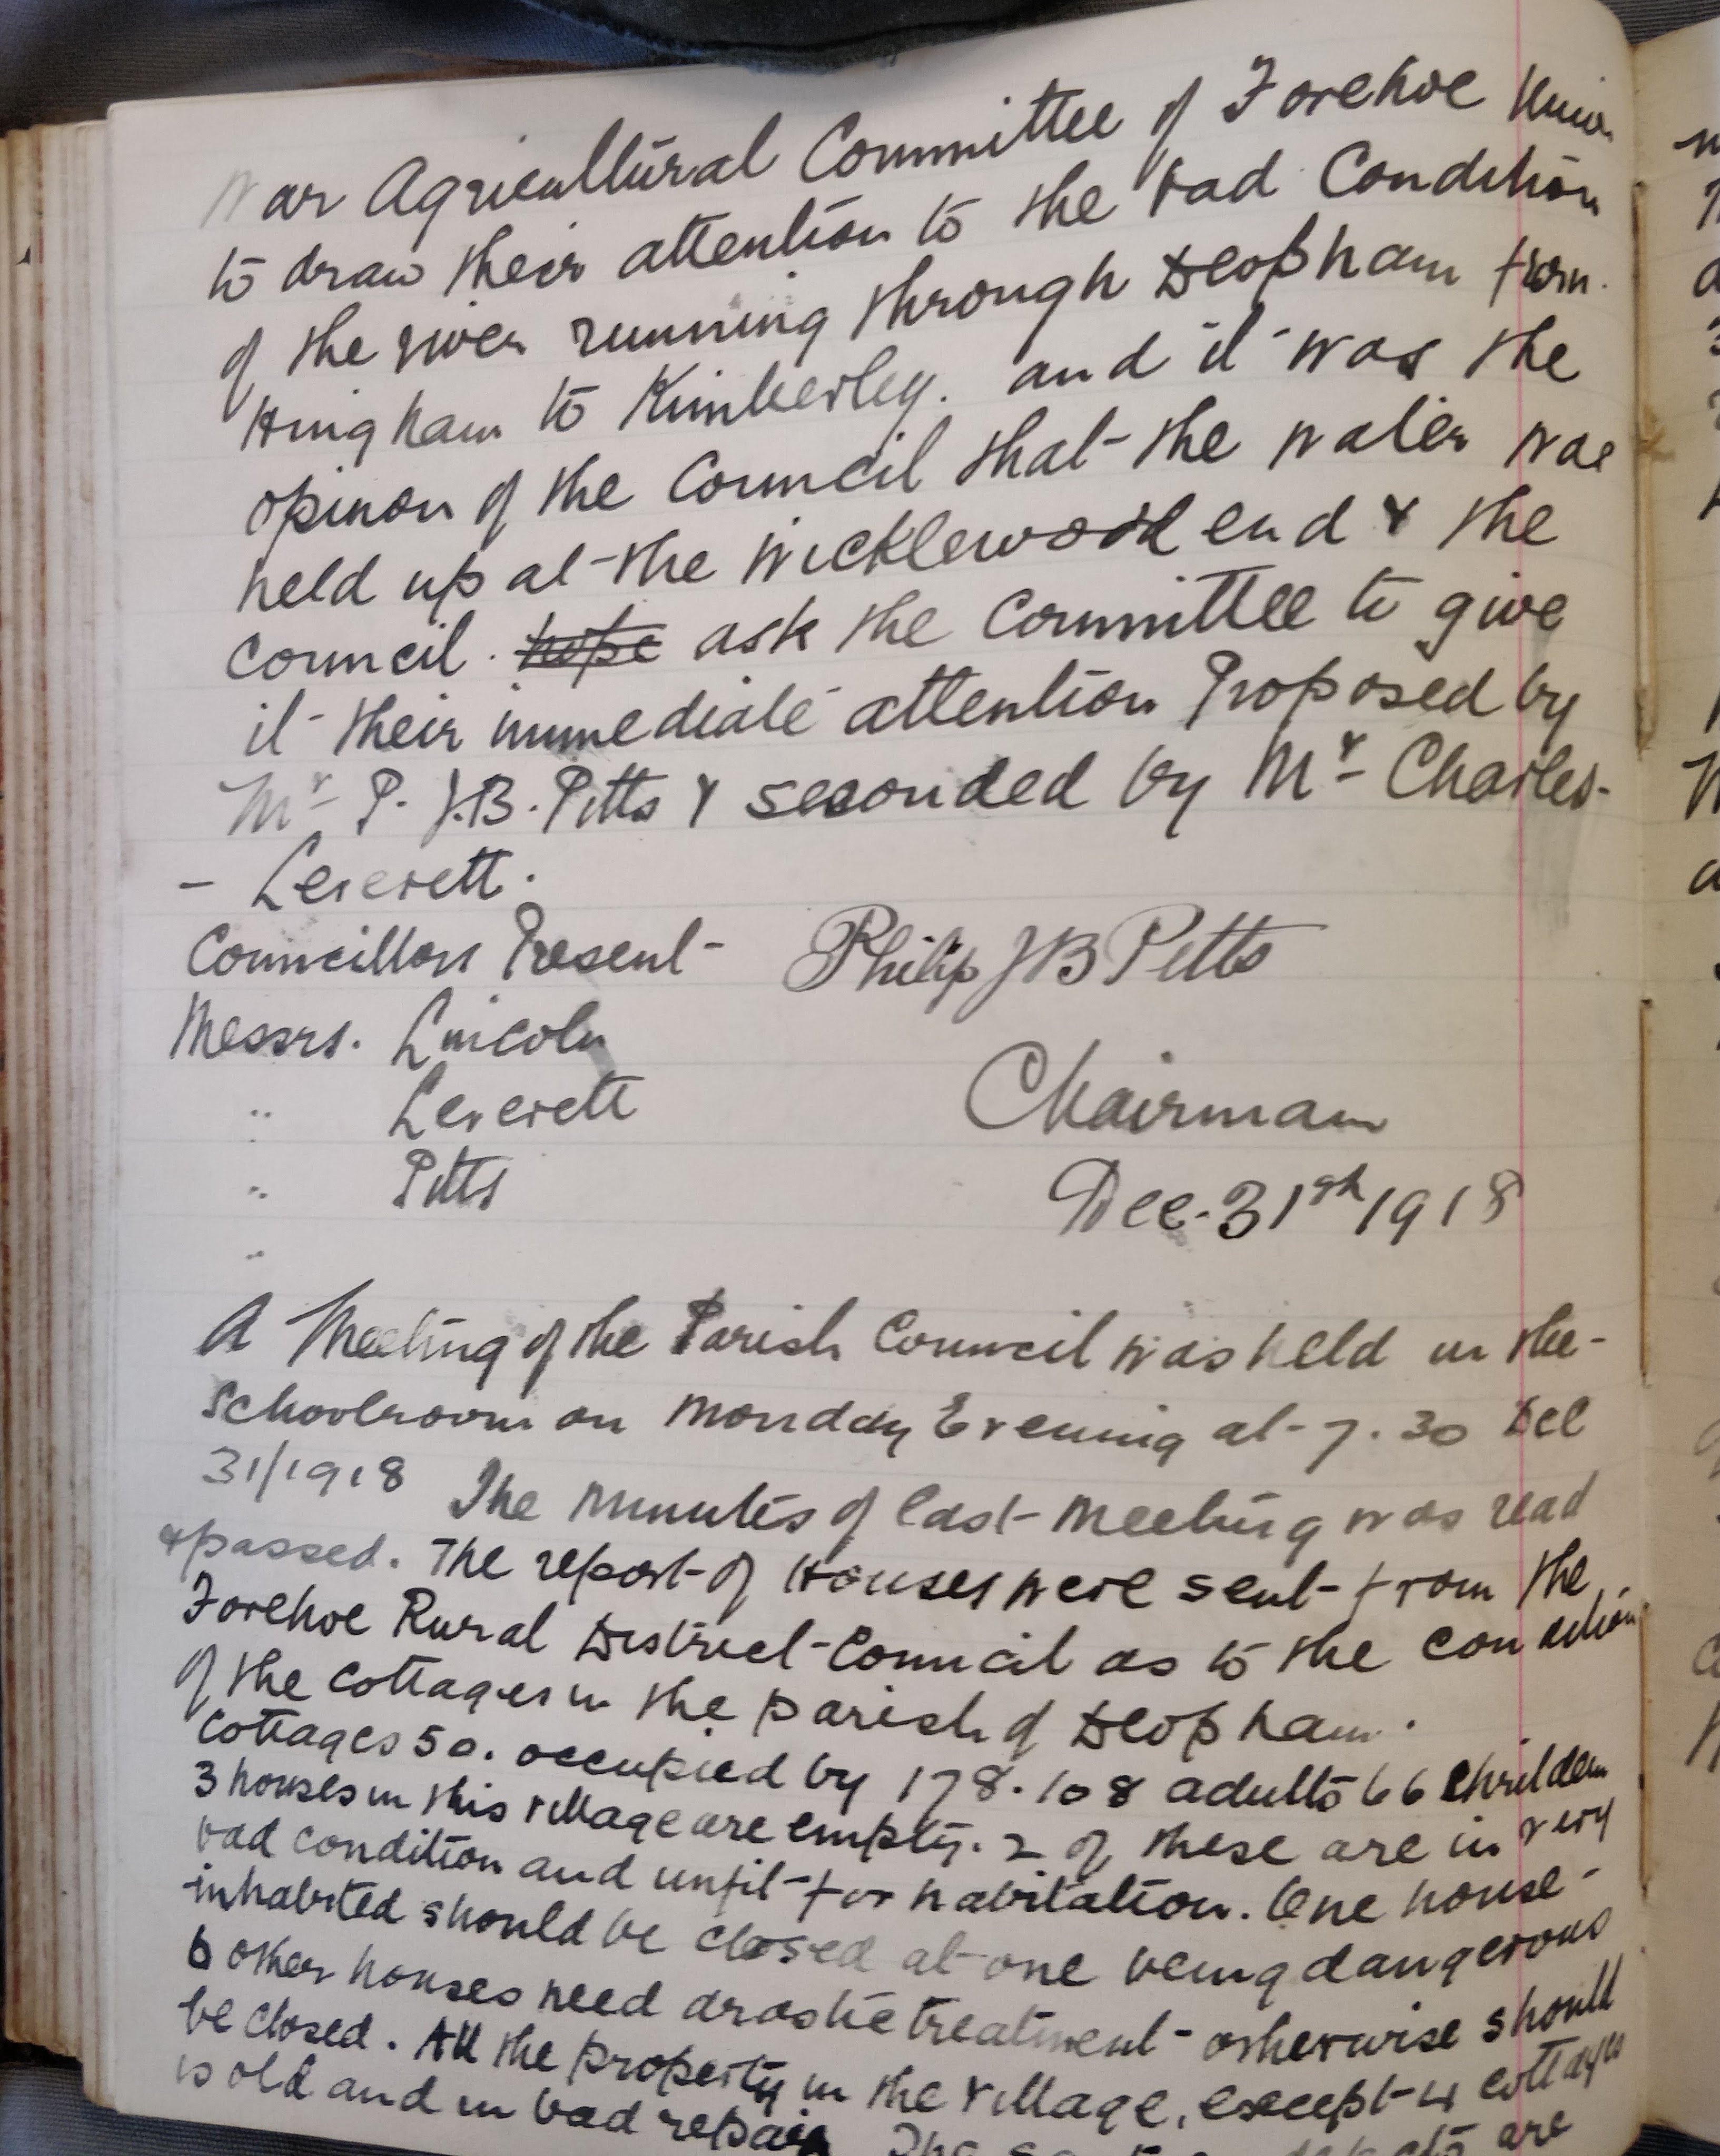 War Agricultural Committee of Forehoe Union
to draw their attention to the bad Condition
of the river running through Deopham from
Hingham to Kimberley. and it was the
opinon of the Council that the water was
held up at the Wicklewood end & the
Council. hope ask the Committee to give
it their immediate attention Proposed by
Mr P. J.B. Pitts & seconded by Mr Charles-
- Leverett.
Councillors Present Philip JB Pitts
Messrs. Lincoln
" Leverett Chairman
" Pitts Dec. 31st 1918
"
A Meeting of the Parish Council was held in the-
Schoolroom on Monday Evening at 7.30 Dec
31/1918 The Minutes of last Meeting was read
& passed. The report of Houses were sent from the
Forehoe Rural District Council as to the condition
of the Cottages in the parish of Deopham.
Cottages 50. occupied by 178. 108 adults 66 Children
3 houses in this village are empty. 2 of these are in very
bad condition and unfit for habitation. One house-
inhabited should be closed at one being dangerous
6 other houses need drastic treatment otherwise should
be closed. All the property in the village, except 4 cottages
is old and in bad repair The are